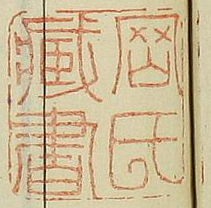 岡氏
藏書